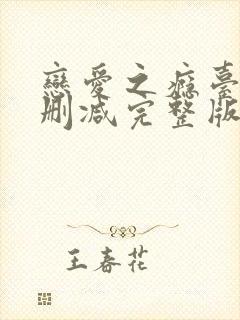 戀愛之癮臺
刪減完整版
王春花